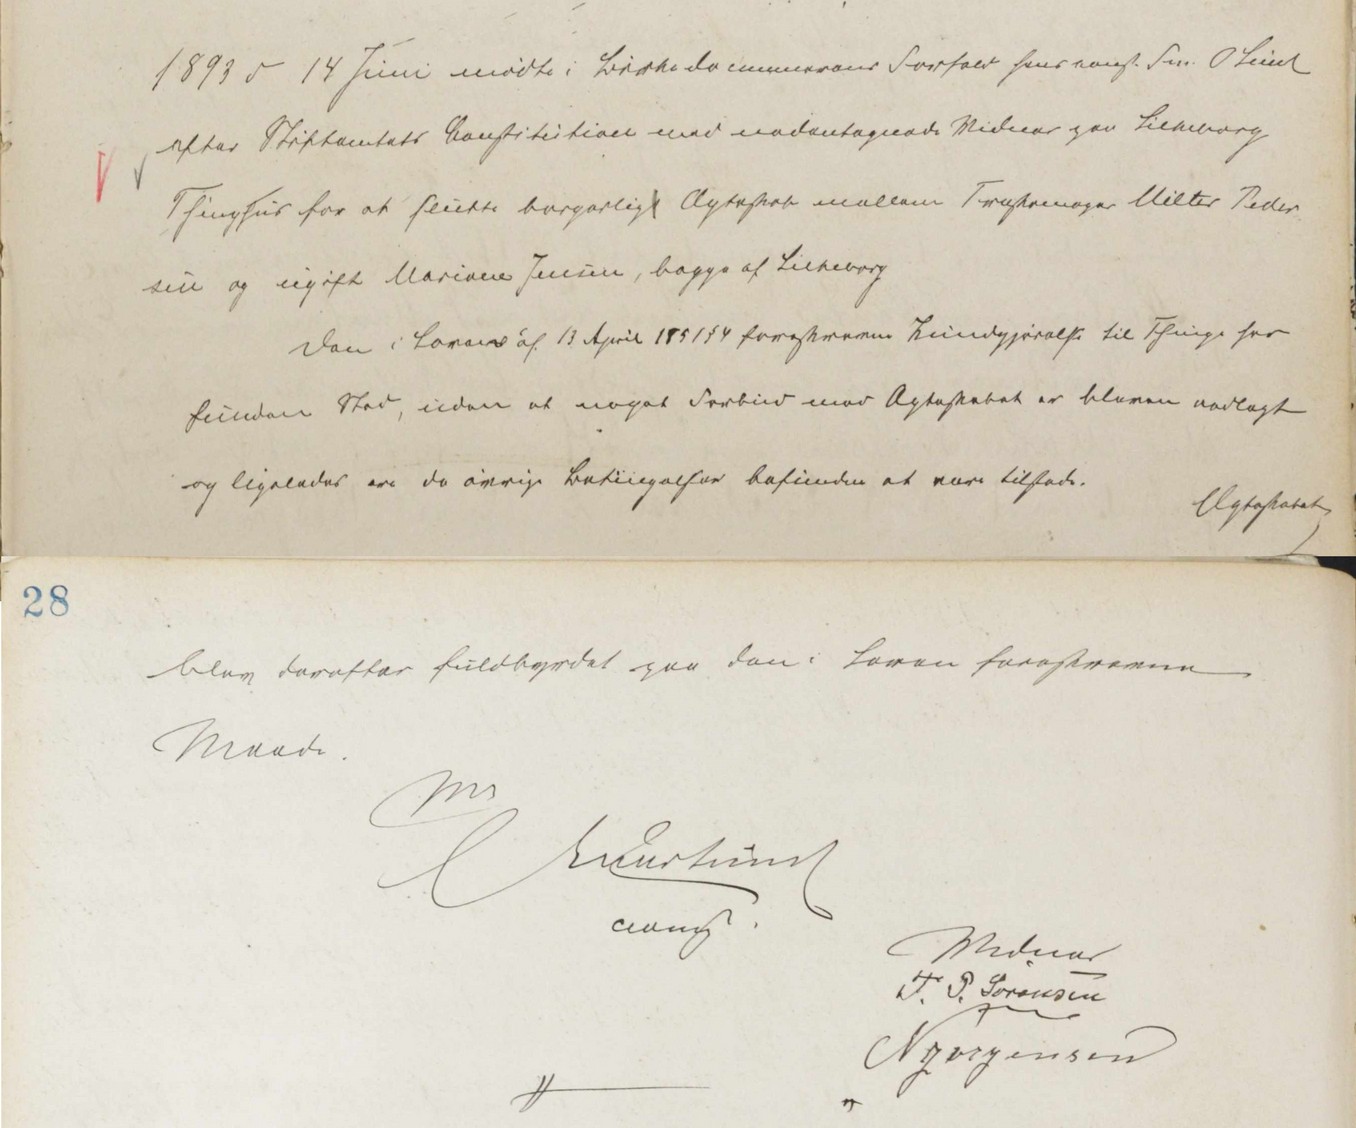 1893 d 14 Juni mødte i Birkedommerens Forfald hans const. Fm. O Lund
efter Stiftamtets Constitution med nedentagnede Vidner paa Silkeborg
Thinghus for at slutte borgerligt Ægteskab mellem Træskomager Milter Peder
sen og ugift Mariane Jensen, begge af Silkeborg
Den i Loven af 13 April 1851 § 4 foreskrevne Kundgjørelse til Thinge har
funden Sted, uden at noget Forbud mod Ægteskabet er bleven nedlagt
og ligeledes ere de øvrige Betingelser befunden at være tilstede.
Ægteskabet
28
blev derefter fuldbyrdet paa den i Loven foreskrevne
Maade.
const.
Vidner
F. P. Sørensen
N Jørgensen